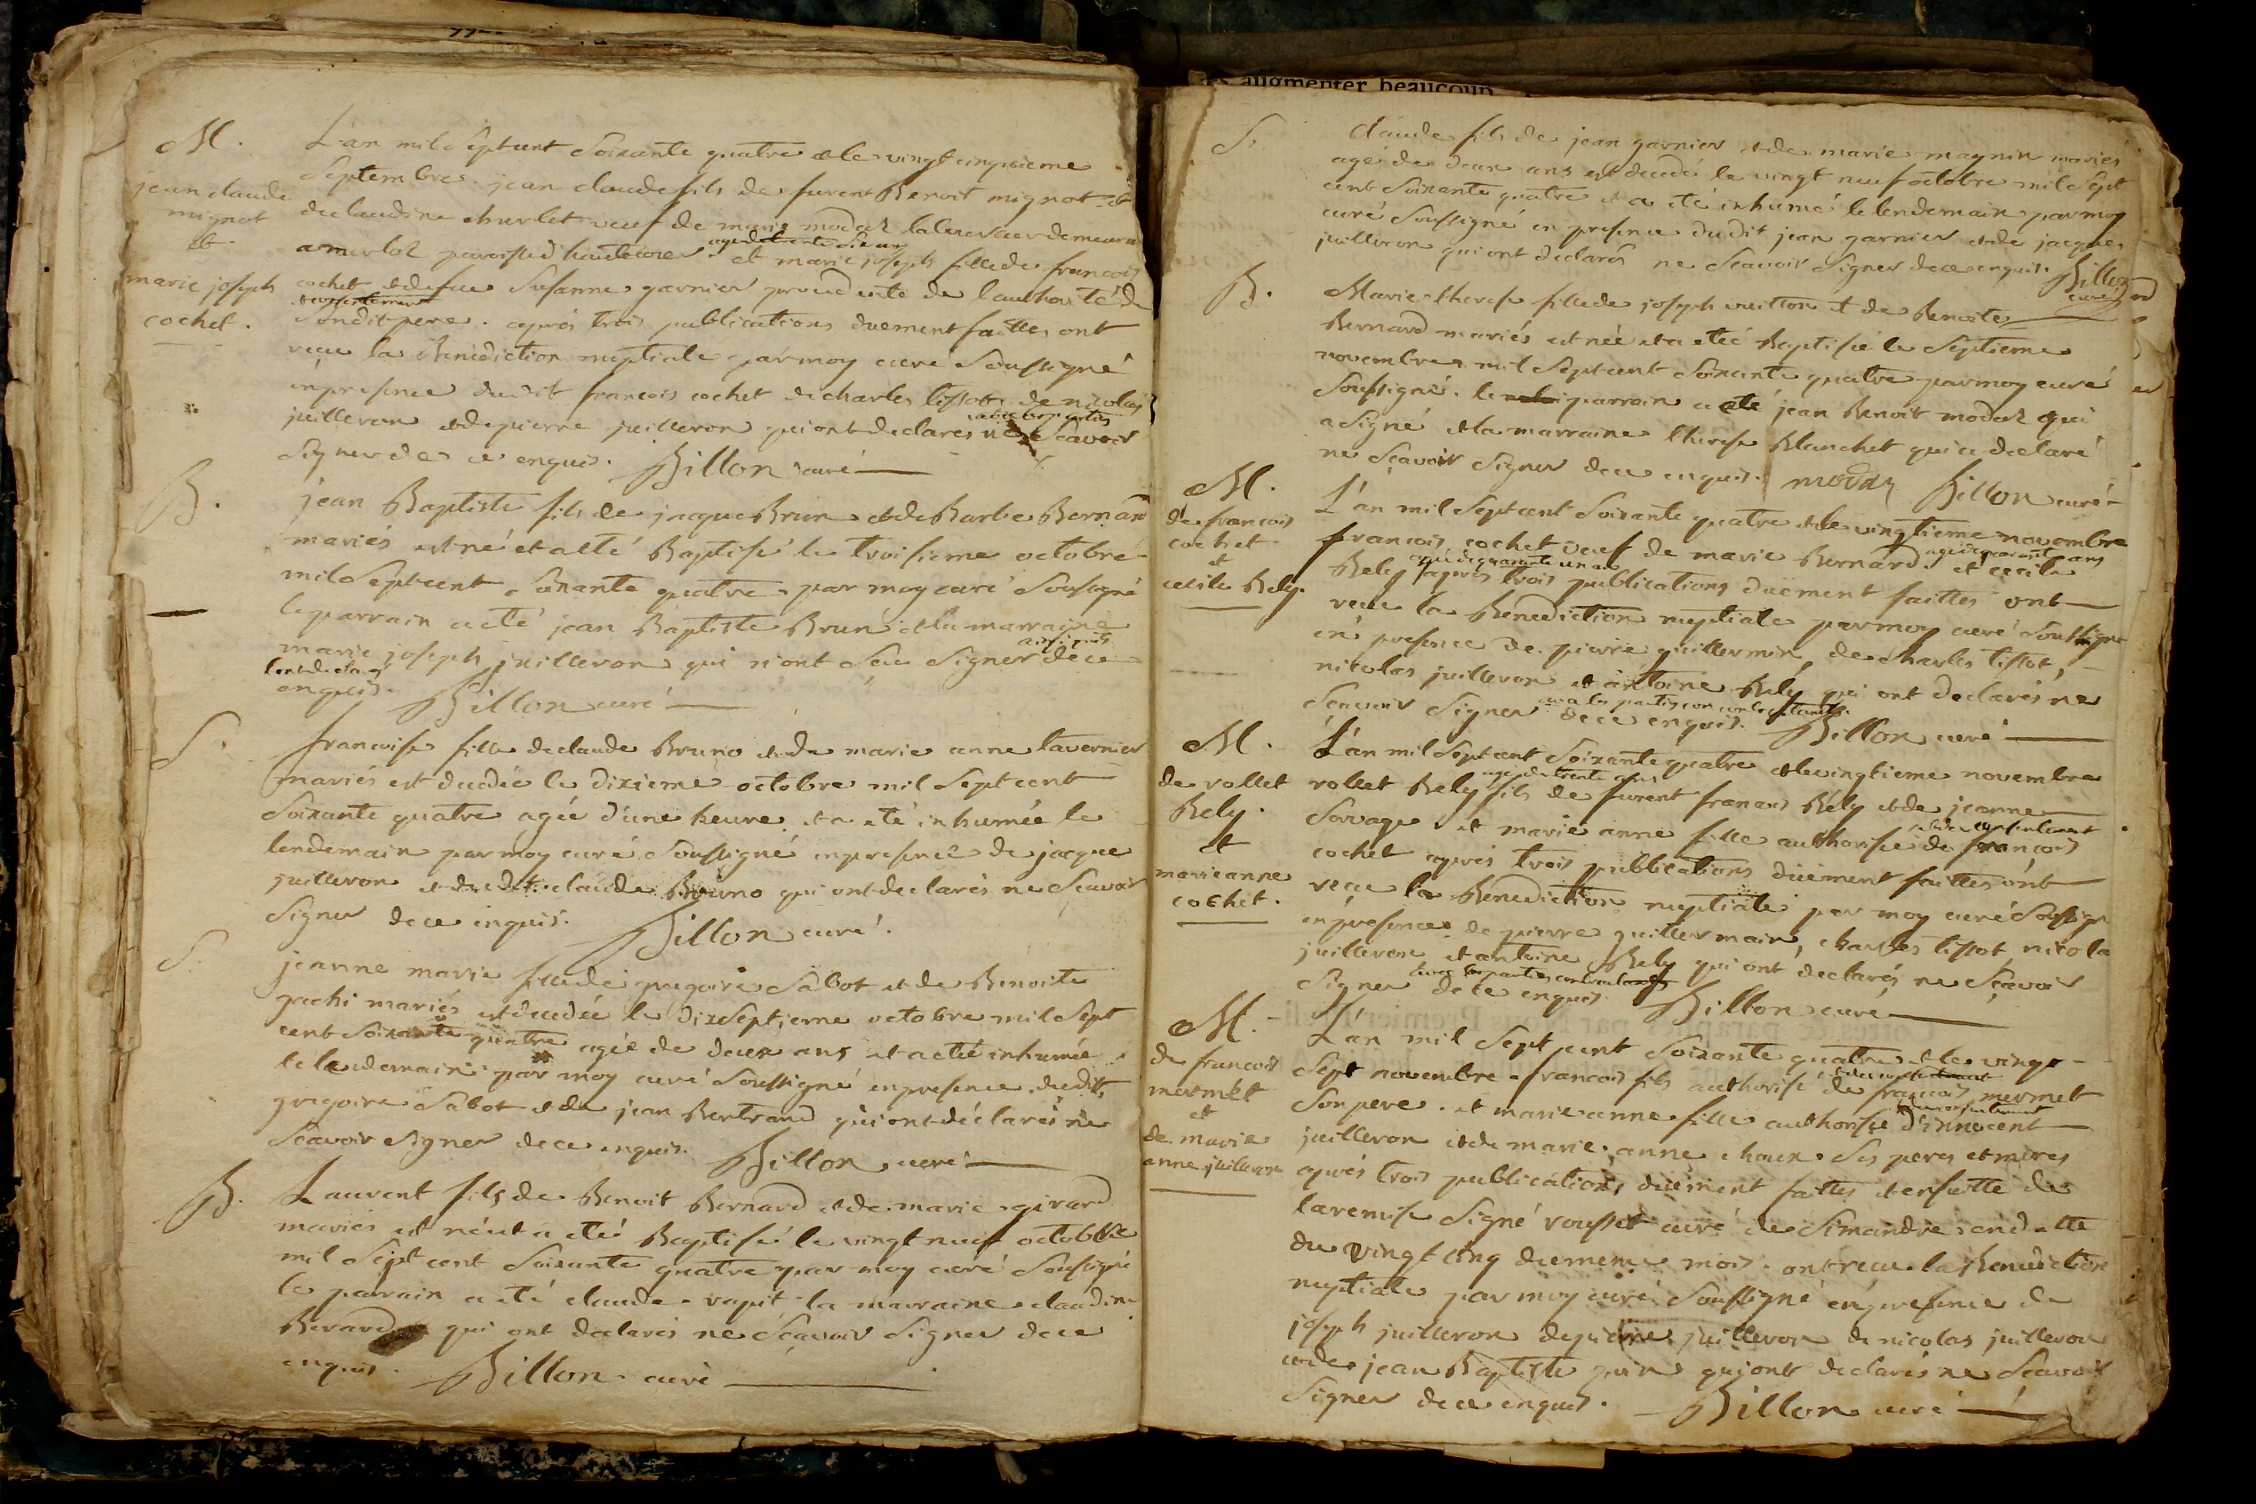 M.
jean claude
mignot
et
marie joseph
cochet.
L'an mil septcent soixante quatre et le vingt cinquieme
septembre jean claude fils de furent Benoit mignot et
de claudine churlet veuf de marie modaz laboureur demeurant
a merloz paroisse d'hautecour et marie joseph fille de francois
cochet et de fue Susanne garnier procedante de l'authorité de
et consentement
Sondit pere. après trois publications duement faittes ont
reçu la Benediction nuptiale par moy curé Soussigné
en presence dudit francois cochet de charles tissot de nicolas
avec les parties
juilleron et de pierre juilleron qui ont declarés ne Scavoir
Signer de ce enquis. Billon curé
B.
jean Baptiste fils de jacque Brun et de Barbe Bernard
mariés est né et a eté Baptisé le troisieme octobre
mil Septcent Soixante quatre par moy curé Soussigné
le parrain a eté jean Baptiste Brun et la marraine
marie joseph juilleron qui n'ont Sceu Signer de ce
ainsi qu'ils
l'ont declarés
enquis. Billon curé
S.
francoise fille de claude Bruno et de marie anne tavernier
mariés est decedée le dixieme octobre mil Sept cent
Soixante quatre agée d'une heure et a eté inhumée le
lendemain par moy curé Soussigné en presence de jacque
juilleron et dudit claude Bruno qui ont declarés ne Scavoir
Signer de ce enquis. Billon curé.
S.
jeanne marie fille de gregoire Sabot et de Benoite
gochi mariés est decedée le dixseptieme octobre mil Sept
cent Soixante quatre agée de deux ans et a eté inhumée
le lendemain par moy curé Soussigné en presence dudit
gregoire Sabot et de jean Bertrand qui ont déclarés ne
Scavoir Signer de ce enquis. Billon curé
B.
Laurent fils de Benoit Bernard et de marie girard
mariés est né et a eté Baptisé le vingt neuf octobre
mil Sept cent Soixante quatre par moy curé Soussigné
le parrain a eté claude rapit la marraine claudine
Berard qui ont declarés ne Scavoir Signer de ce
enquis. Billon curé
augmenter beaucoup
S.
claude fils de jean garnier et de marie magnin mariés
agé de deux ans est decedé le vingt neuf octobre mil Sept
cent Soixante quatre et a eté inhumé le lendemain par moy
curé Soussigné en presence dudit jean garnier et de jacques
juilleron qui ont declarés ne Scavoir Signer de ce enquis. Billon
curé
B.
Marie therese fille de joseph vuitton et de Benoite
Bernard mariés est née et a eté Baptisée le Septieme
novembre mil Septcent Soixante quatre par moy curé
Soussigné. le parrain a eté jean Benoit modaz qui
a Signé et la marraine therese Blanchet qui a declaré
ne Scavoir Signer de ce enquis. modaz Billon curé
M.
de francois
cochet
et
cecile Bely.
L'an mil Septcent Soixante quatre et le vingtieme novembre
francois cochet veuf de marie Bernard et cecile
agée de quarante un an
Bely après trois publications duement faittes ont
reçu la Benediction nuptiale par moy curé Soussigné
en presence de pierre guillermin, de charles tissot,
nicolas juilleron et antoine Bely qui ont declarés ne
Scavoir Signer de ce enquis. Billon curé
M.
de rollet
Bely.
et
marie anne
cochet.
L'an mil Septcent Soixante quatre et le vingtieme novembre
agé de trente ans
rollet Bely fils de furent francois Bély et de jeanne
Savage et marie anne fille authorisée de francois
et du consentement
cochet après trois publications duement faittes ont
reçue la Benediction nuptiale par moy curé Soussigné
en presence de pierre guillermain, charles tissot, nicola
juilleron et antoine Bely qui ont declarés ne Scavoir
avec les parties contractantes
Signer de ce enquis. Billon curé
M.
de francois
mermet
et
de marie
anne juilleron
L'an mil Sept cent Soixante quatre et le vingt
Sept novembre francois fils authorisé de francois mermet
et du consentement
Son pere. et marie anne fille authorisée d'innocent
juilleron et de marie anne chaux Ses peres et meres
après trois publications duement faittes et ensuitte de
la remise Signé rousset curé de Simandre en datte
du vingt cinq du meme mois. ont reçu la Benediction
nuptiale par moy curé Soussigné en presence de
joseph juilleron de pierre juilleron de nicolas juilleron
et de jean Baptiste qui ont declarés ne Scavoir
Signer de ce enquis. Billon curé